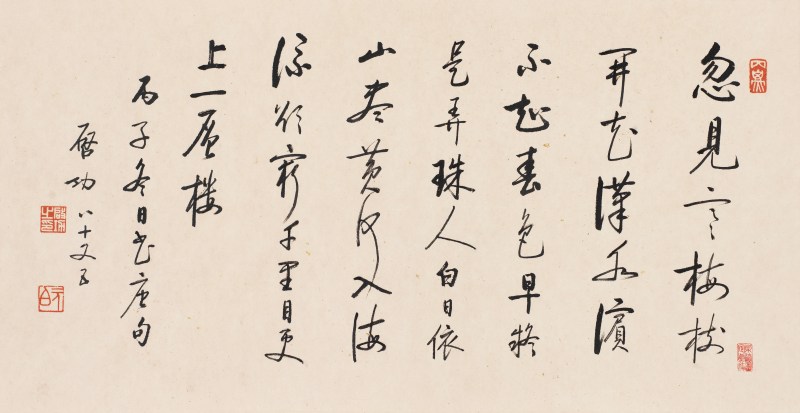 忽見寒梅樹
開花漢水濱
不知春色早疑
是弄珠人白日依
山盡黃河入海
流欲窮千里目更
上一層樓
丙子冬日書唐句
啟功八十又五
啟功之印
元白